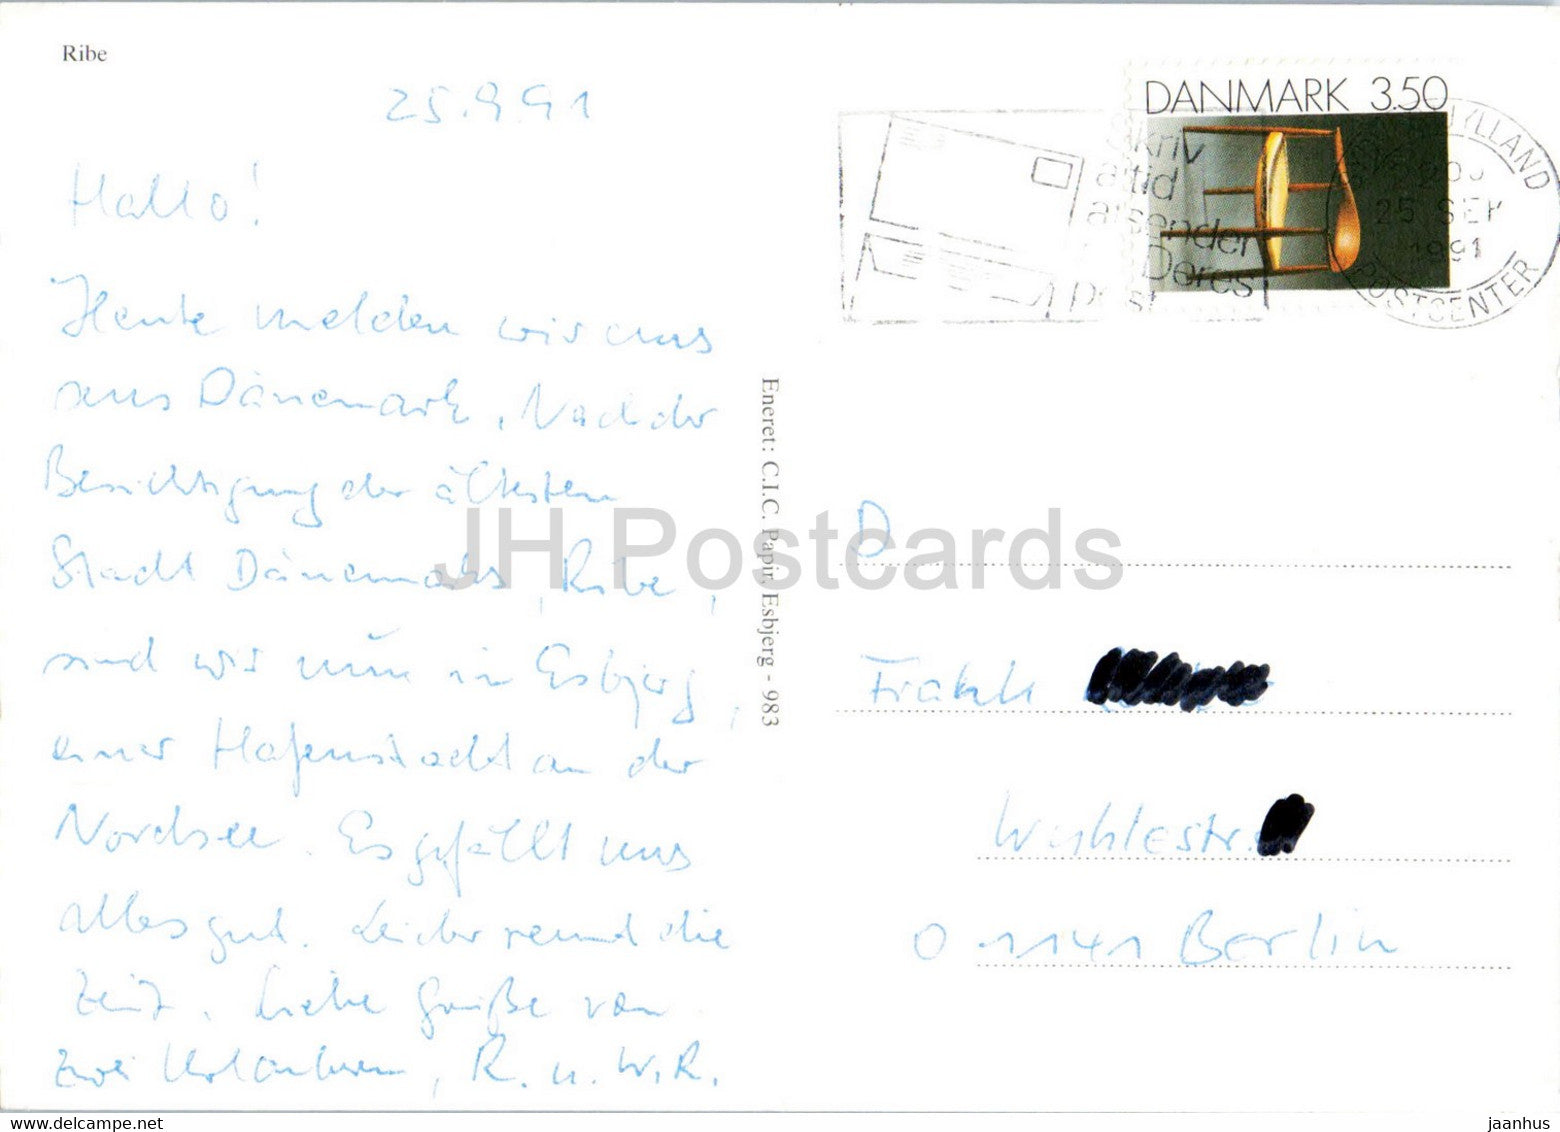 Ribe
25.9.91
Hallo!
Heute melden wir uns
aus Dänemark. Nach der
Besichtigung der ältesten
Stadt Dänemarks, Ribe,
sind wir nun in Esbjerg,
einer Hafenstadt an der
Nordsee. Es gefällt uns
alles gut. Leider rennt die
Zeit. Liebe Grüße von
zwei Urlaubern, R. u. W. R.
Eneret: C.I.C. Papir, Esbjerg - 983
DANMARK 3.50
Skriv
altid
afsender
på Deres
post
JYLLAND
25 SEP
1991
POSTCENTER
D
Frank
Wuhlestr.
O 1141 Berlin
JH Postcards
www.delcampe.net
jaanhus